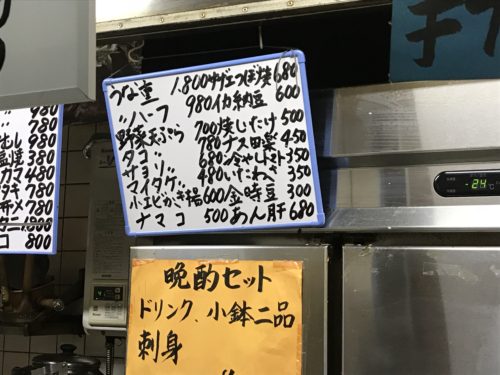 うな重 1.800 サザエつぼ焼 680
〃ハーフ 980 イカ納豆 600
野菜天ぷら 700 焼しいたけ 500
タコ〃 780 ナス田楽 450
サヨリ〃 680 冷やしトマト 350
マイタケ〃 480 いたわさ 350
小エビかき揚 600 金時豆 300
ナマコ 500 あん肝 680
980
780
980
380
480
780
780
800
晩酌セット
ドリンク、小鉢二品
刺身
-24